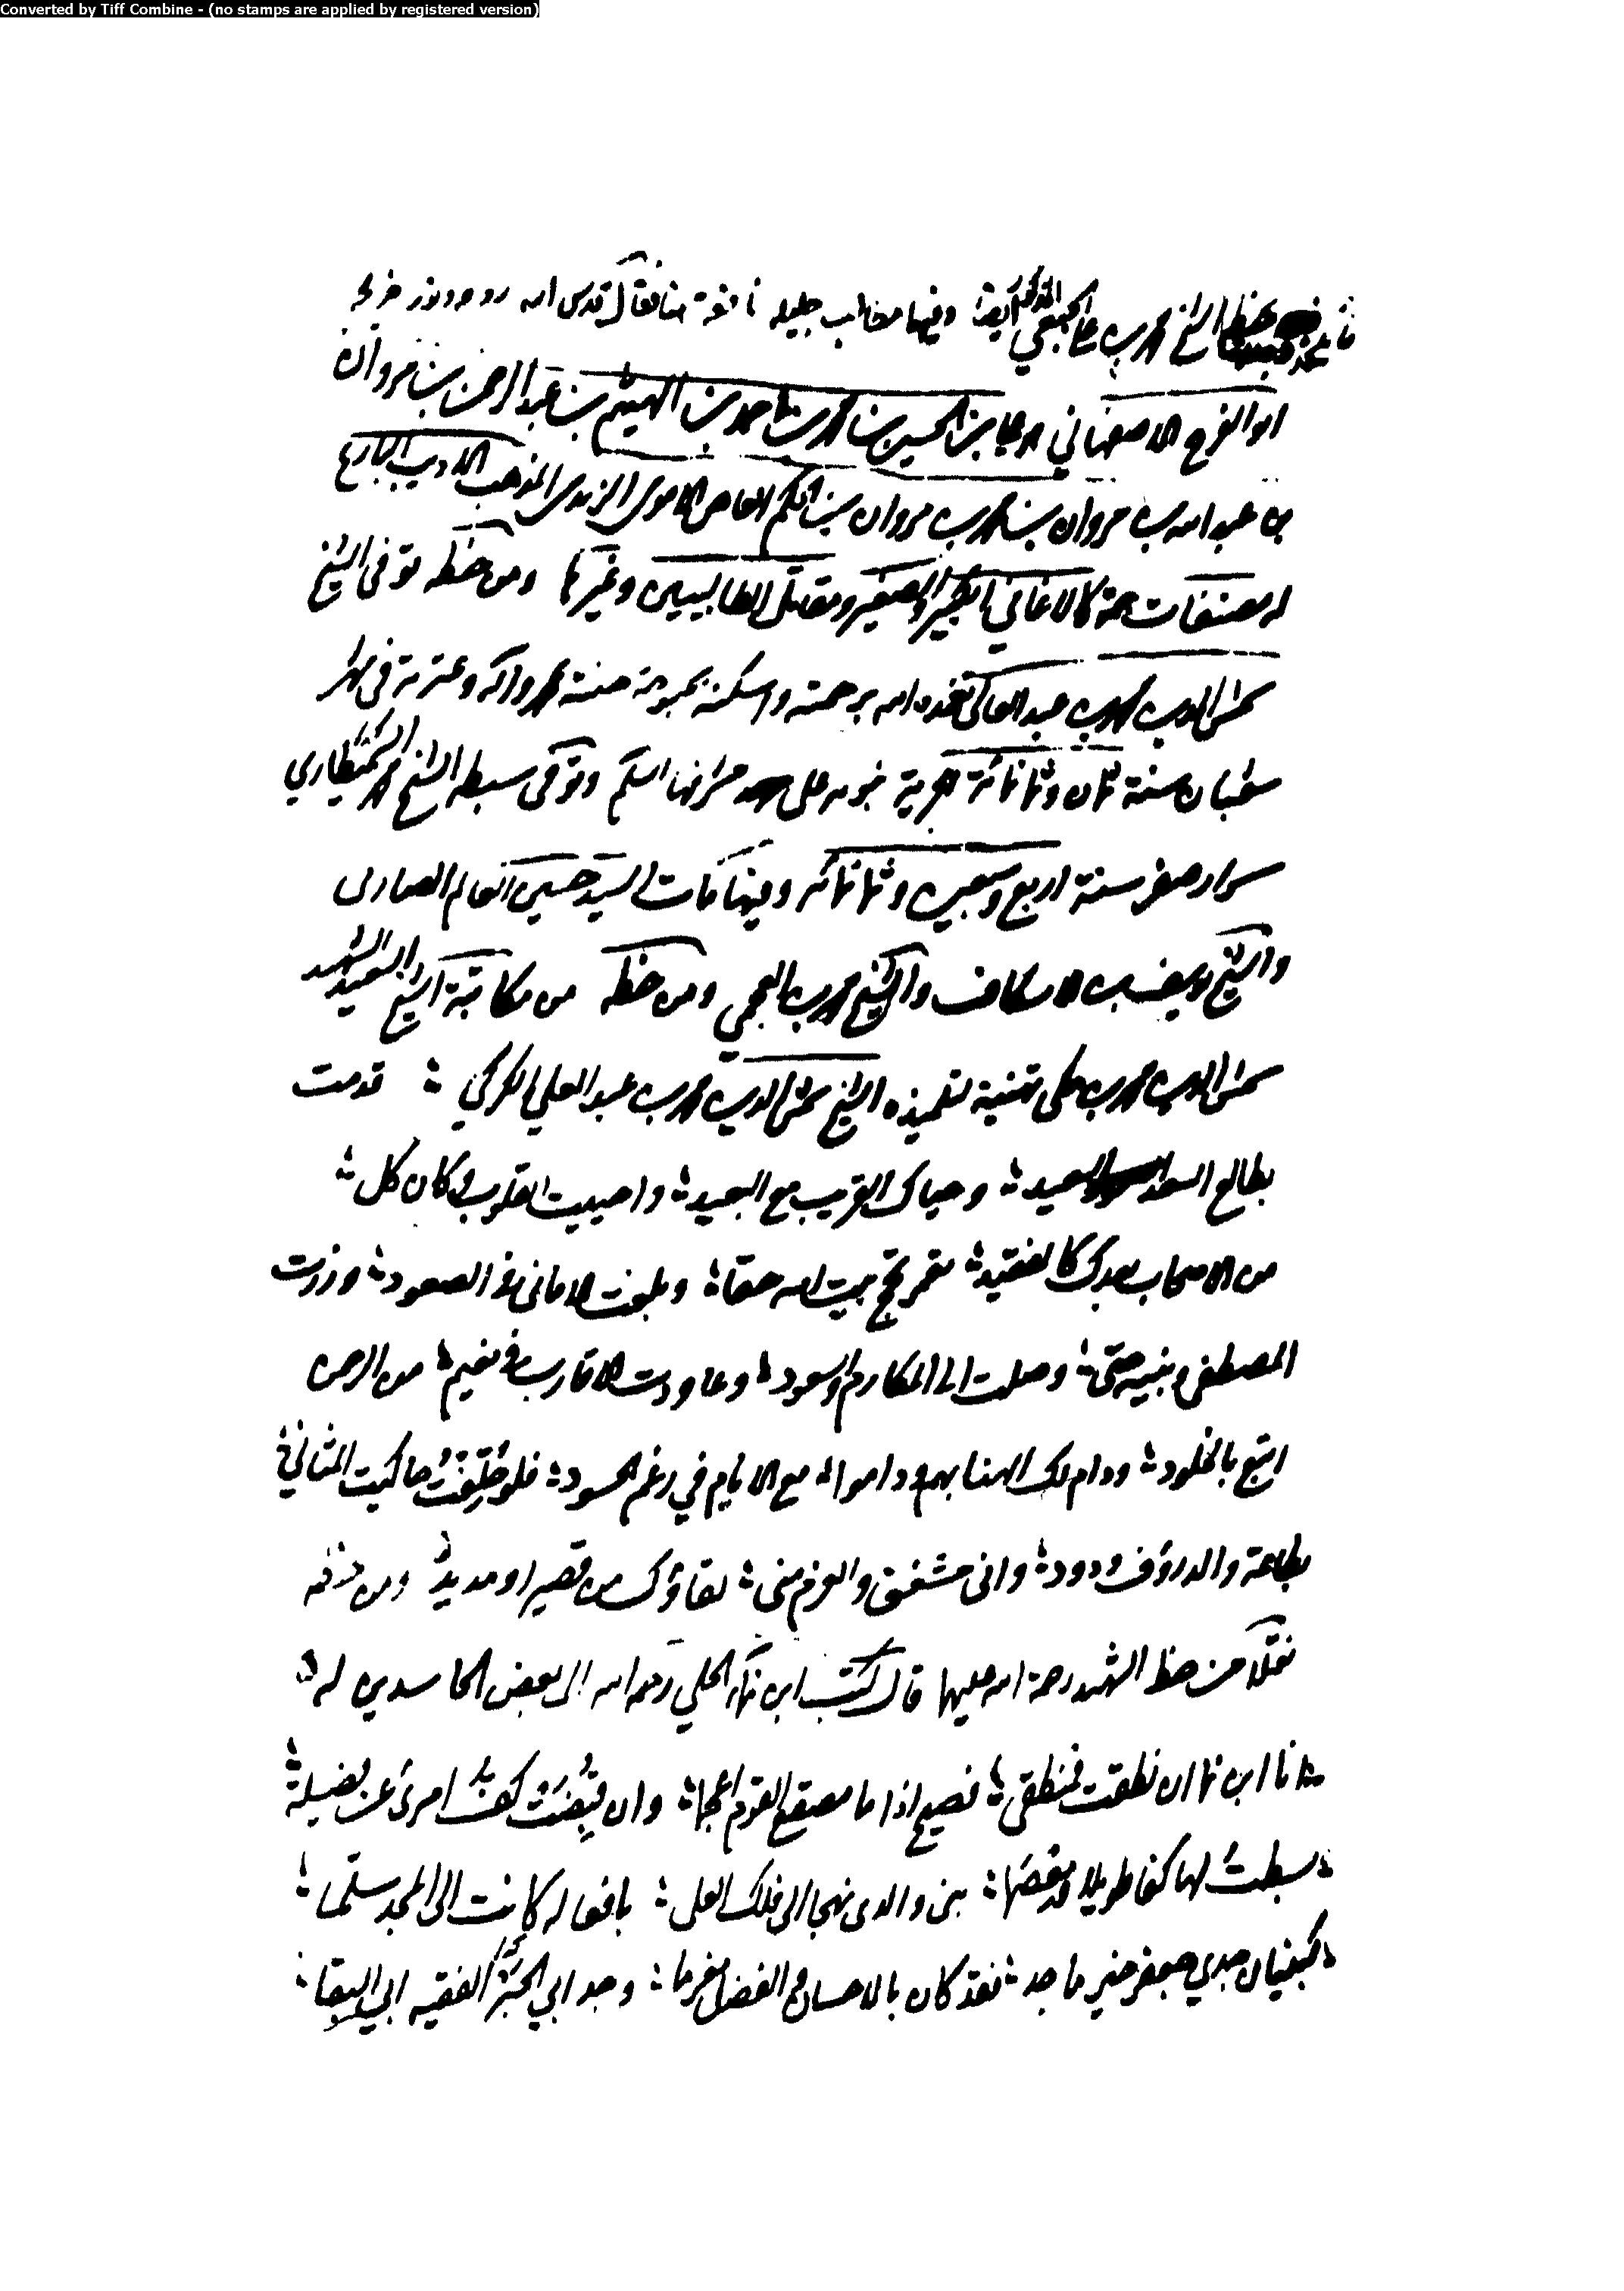 Converted by Tiff Combine - (no stamps are applied by registered version)
بخط الشيخ محمد بن علي الجبعي المذكور أيضا وفيها مطالب جليلة نافعة هنا فقال قدس الله روحه ونور ضريحه
ابو الفرج الاصفهاني هو علي بن الحسين بن محمد بن احمد بن الهيثم بن عبد الرحمن بن مروان
بن عبد الله بن مروان بن محمد بن مروان بن الحكم العاص الاموي الزيدي المذهب الاديب البارع
له مصنفات جمة كالاغاني الكبير والصغير ومقاتل الطالبيين وغيرها ومن خطه توفي الشيخ
شمس الدين محمد بن عبد العالي تغمده الله برحمته واسكنه بحبوحة جنته بمحمد وآله وعترته في
شعبان سنة ثمان وثمانمائة هجرية نبويه على مشرفها السلم وتوفي سبطه الشيخ محمد السميطاري
سرار صفر سنة اربع وسبعين وثمانمائه وفيها مات السيد حسين العالم الصارلى
والشيخ يوسف بن الاسكاف والشيخ محمد بن العجمي ومن خطه من مكاتبة الشيخ السعيد الشهيد
شمس الدين محمد بن مكي تهنية لتلميذه الشيخ شمس الدين محمد بن عبد العلي الكركي قدمت
بطالع السعد السعيد وحياك القريب مع البعيد واحييت القلوب وكان كل
من الاصحاب بعدك كالفقيد نعم بحج بيت الله حقا وبلغت الاماني في الصعود وزرت
المصطفى وبنيه حتى وصلت الى المكارم والسعود وعاودت الاقارب في نعيم من الرحمن
اتبع بالخلود ودام لك الهنا بهم وداموا مع الايام في رغم الحسود فلو خلقت حاكيت المثاني
بطاعة والد رؤف ودود واني مشفق والعزم مني لقاؤك من قصير او مديد ومن خطه
نقلا من خط الشهيد رحمة الله عليهما قال كتب ابن نما الحلي رحمه الله الى بعض الحاسدين له
انا ابن نما ان نطقت فمنطقي فصيح اذا ما مصقع القوم اعجما وان قبضت كف امرئ عن فضيلة
بسطت لها كفا طويلا ومعصما بنى والدي نهجا الى فلك العلى بافعاله كانت الى المجد سلما
كبنيان جدي جعفر خير ماجد فقد كان بالاحسان والفضل مغرما وجد ابي الحبر الفقيه ابي البقا